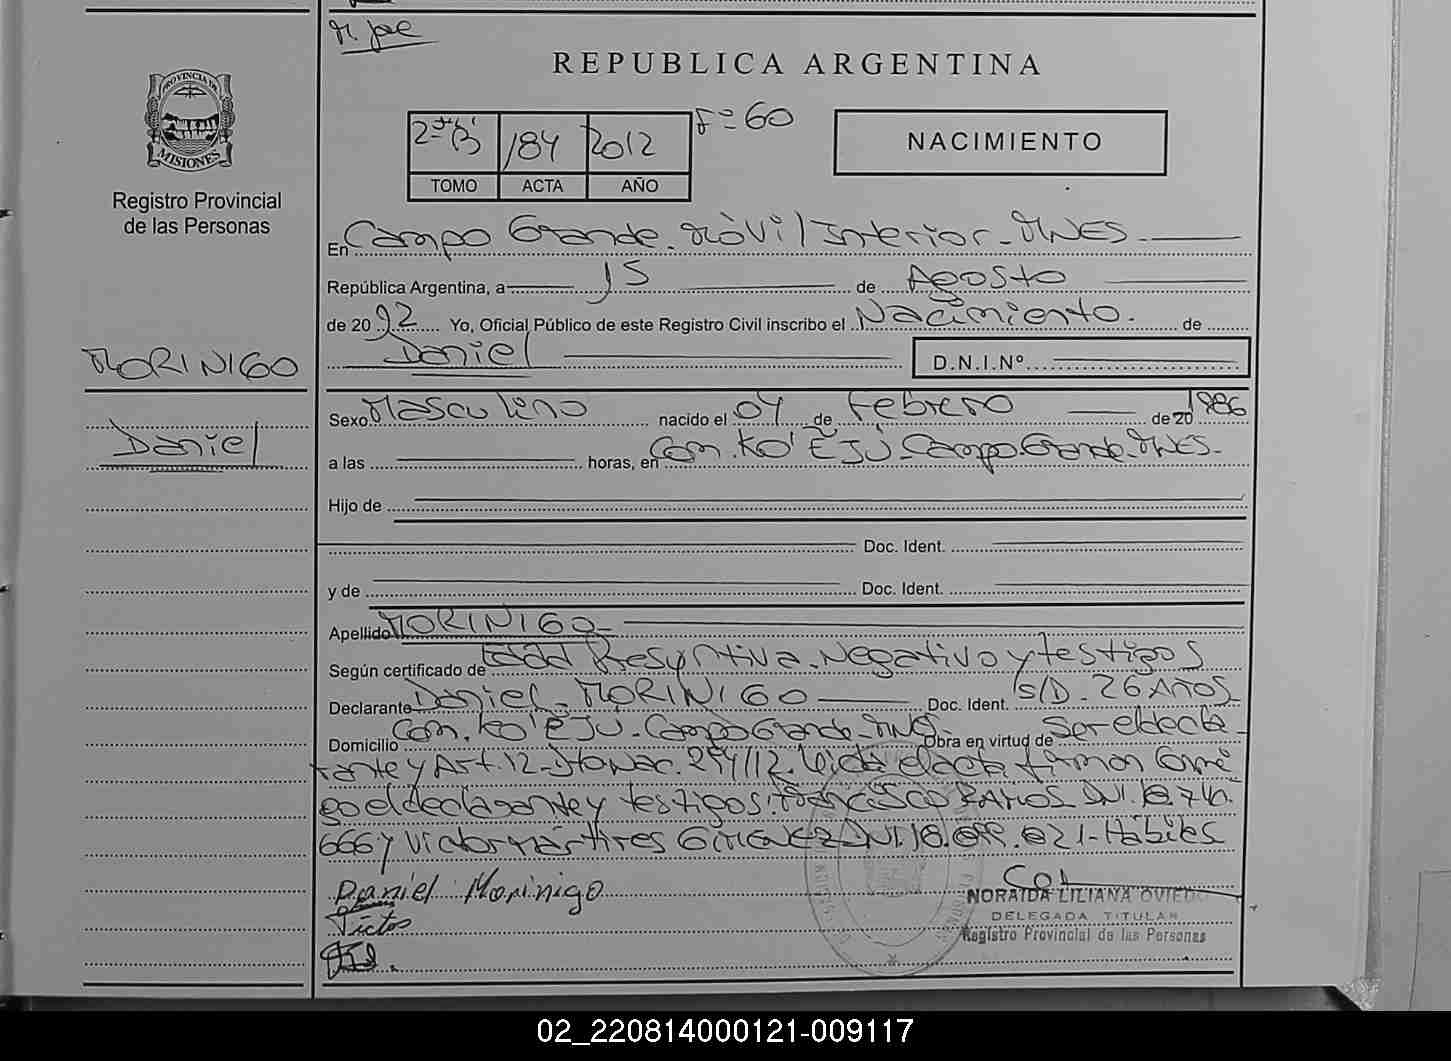 REPUBLICA ARGENTINA
PROVINCIA DE
MISIONES
Registro Provincial
de las Personas
184 2012
Fº 60
TOMO ACTA AÑO
NACIMIENTO
En Campo Grande. Móvil Interior - MNES.
República Argentina, a 15 de Agosto
de 20 12 Yo, Oficial Público de este Registro Civil inscribo el Nacimiento. de
Daniel D.N.I.Nº
MORINIGO
Daniel
Sexo Masculino nacido el 04 de Febrero de 20 1986
a las horas, en Com. KO'ËJÚ Campo Grande. MNES.
Hijo de
Doc. Ident.
y de Doc. Ident.
Apellido MORINIGO
Según certificado de Edad Presuntiva. Negativo y testigos
Declarante Daniel MORINIGO Doc. Ident. S/D. 26 AÑOS
Domicilio Com. KO'ËJU. Campo Grande. MNES. Obra en virtud de Ser el decla-
rante y Art. 12 - 294/12. Leida el acta firman conmi
go el declarante y testigos: FRANCISCO RAMOS DNI. 18.
666 y Victor Mártires GIMENEZ DNI. 18. .021 - Hábiles
Daniel Morinigo
Victos
NORAIDA LILIANA OVIEDO
DELEGADA TITULAR
Registro Provincial de las Personas
02_220814000121-009117